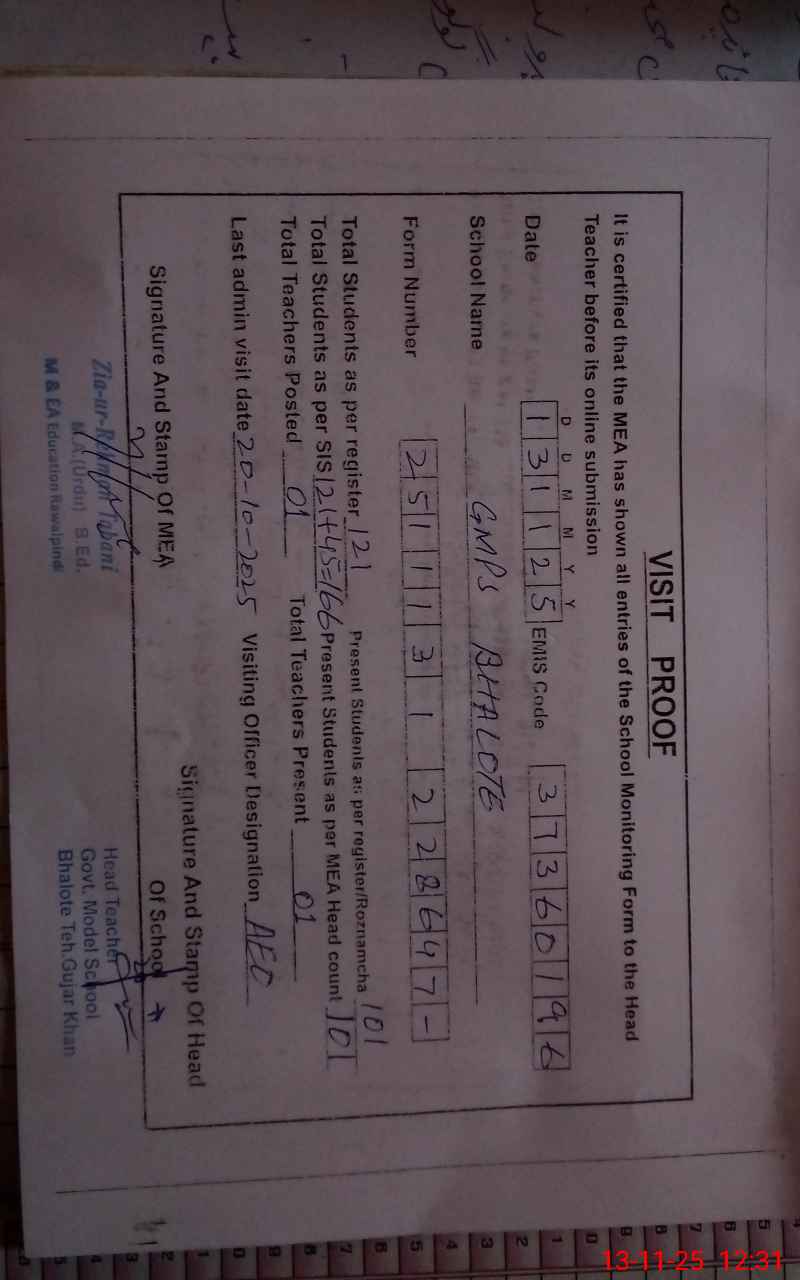 VISIT PROOF
It is certified that the MEA has shown all entries of the School Monitoring Form to the Head
Teacher before its online submission
D D M M Y Y
Date 1 3 1 1 2 5 EMIS Code 3 7 3 6 0 1 9 6
School Name GMPS BHALOTE
Form Number 2 5 1 1 1 3 1 2 2 8 6 4 7 -
Total Students as per register 121 Present Students as per register/Roznamcha 101
Total Students as per SIS 121+45=166 Present Students as per MEA Head count 101
Total Teachers Posted 01 Total Teachers Present 01
Last admin visit date 20-10-2025 Visiting Officer Designation AEO
Signature And Stamp Of MEA
Signature And Stamp Of Head
Of School
Zia-ur-Rehman Tabani
M.A.(Urdu) B.Ed.
M & EA Education Rawalpindi
Head Teacher
Govt. Model School
Bhalote Teh.Gujar Khan
13-11-25 12:31